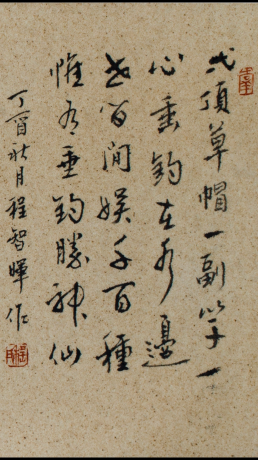 弌顶草帽一副竿一
心垂钓在水邊
世间娱千百種
惟有垂钓勝神仙
丁酉秋月程智暉作